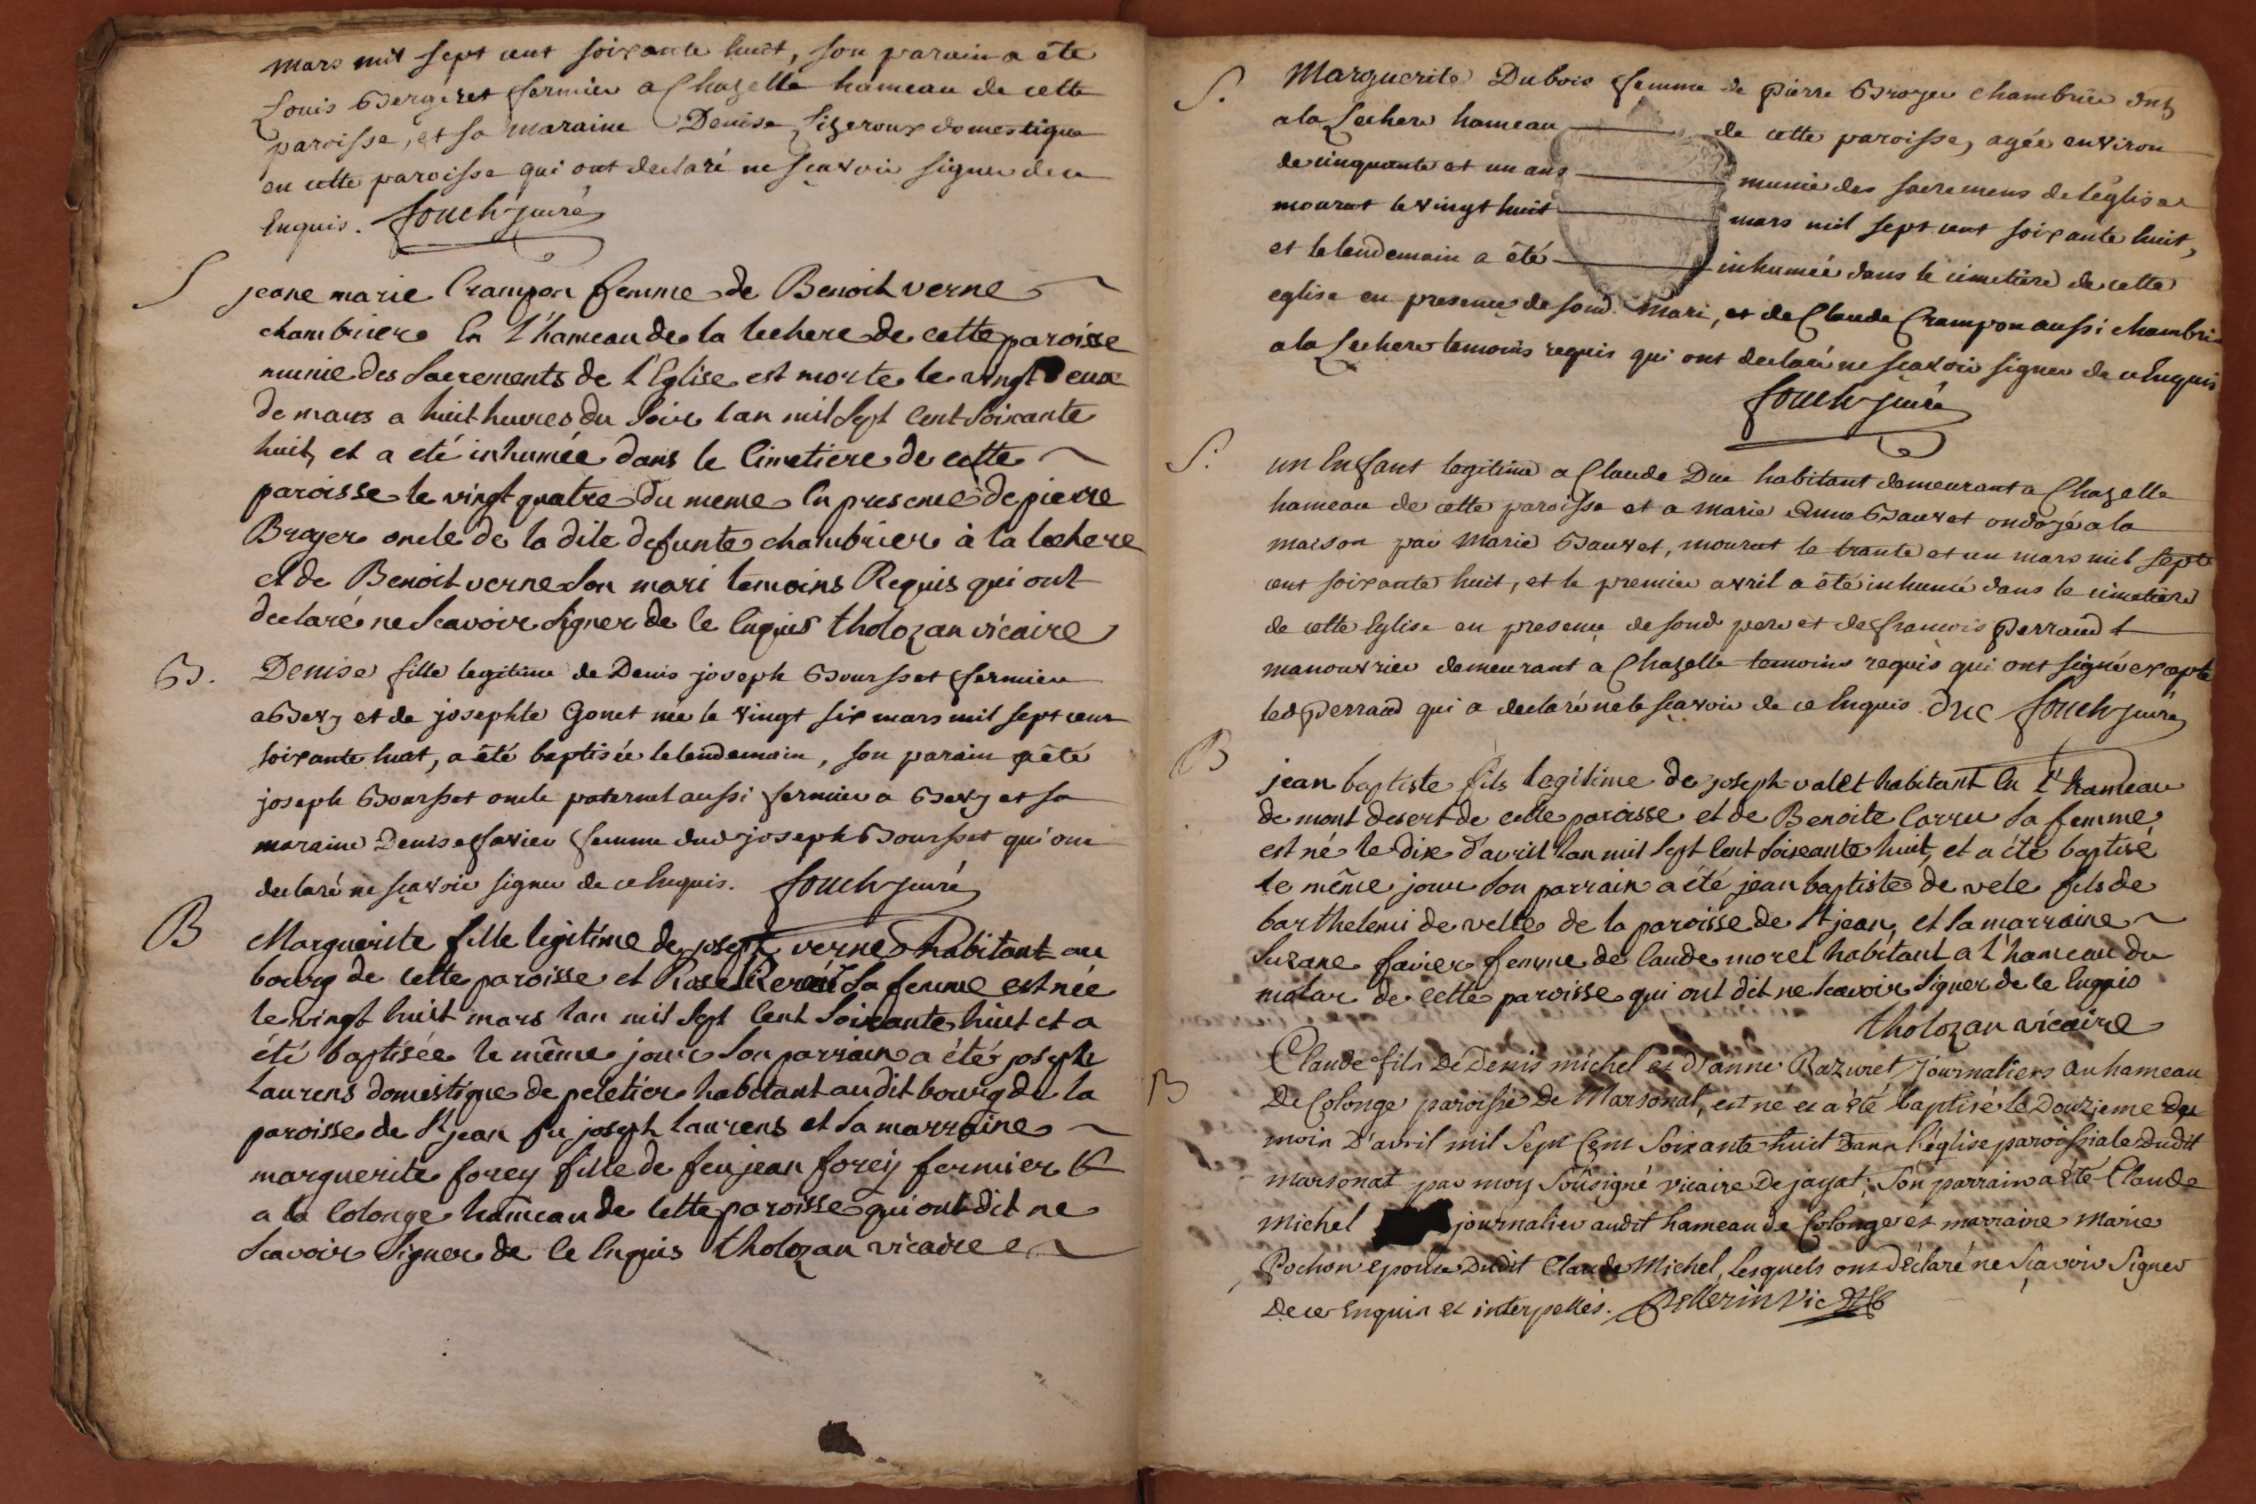 mars mil sept cent soixante huit, son parain a été
Louis Bergeret fermier a Chazelle hameau de cette
paroisse, et sa maraine Denise Ligeroux domestique
en cette paroisse qui ont declaré ne sçavoir signer de ce
Enquis. fouch curé
S
jeane marie Crampon femme de Benoit verne
chambriere En l'hameau de la lechere de cette paroisse
munie des Sacrements de l'Eglise est morte le vingt deux
de mars a huit heures du Soir lan mil Sept Cent Soixante
huit, et a eté inhumée dans le Cimetiere de cette
paroisse le vingt quatre du meme En presence de pierre
Broyer oncle de la dite defunte chambrier à la lechere
et de Benoit verne Son mari temoins Requis qui ont
declaré ne Scavoir Signer de Ce Enquis tholozan vicaire
B.
Denise fille legitime de Denis joseph Bourset fermier
a Bevy et de josephte Gonet née le vingt six mars mil sept cent
soixante huit, a été baptisée le lendemain, son parain a été
joseph Bourset oncle paternel aussi fermier a Bevy et sa
maraine Denise favier femme dud joseph Bourset qui ont
declaré ne sçavoir signer de ce Enquis. fouch curé
B
Marguerite fille legitime de joseph verne habitant au
bourg de cette paroisse et Rose Sa femme est née
le vingt huit mars lan mil Sept Cent Soixante huit et a
été baptisée le même jour Son parrain a été joseph
laurens domestique de peletier habitant audit bourg de la
paroisse de St jean fu joseph laurens et Sa marraine
marguerite forey fille de feu jean forey fermier
a la Colonge hameau de Cette paroisse qui ont dit ne
Scavoir Signer de Ce Enquis tholozan vicaire
S.
Marguerite Dubois femme de Pierre Broyer chambrier
a la Lechere hameau de cette paroisse, agée environ
de cinquante et un ans munie des sacremens de l'église
mourut le vingt huit mars mil sept cent soixante huit,
et le lendemain a été inhumée dans le cimetière de cette
eglise en presence de sond. mari, et de Claude Crampon aussi chambrier
a la Lechere temoins requis qui ont declaré ne sçavoir signer de ce Enquis
fouch curé
S.
un Enfant legitime a Claude Duc habitant demeurant a Chazelle
hameau de cette paroisse et a marie Anne Bauvet ondoyé a la
maison par Marie Bauvet, mourut le trante et un mars mil sept
cent soixante huit, et le premier avril a été inhumé dans le cimetière
de cette Eglise en presence de sond pere et de francois perraud
manouvrier demeurant a Chazelle temoins requis qui ont signé excepté
led perraud qui a declaré ne le sçavoir de ce Enquis. Duc fouch curé
B
jean baptiste fils legitime de joseph valet habitant En l'hameau
de mont desert de cette paroisse et de Benoite Carru Sa femme
est né le dix d'avril lan mil Sept Cent Soixante huit, et a été baptisé
le même jour Son parrain a été jean baptiste de vele fils de
barthelemi de velle de la paroisse de St jean, et Sa marraine
Susane favier femme de Claude morel habitant a l'hameau du
malar de cette paroisse qui ont dit ne Scavoir Signer de Ce Enquis
tholozan vicaire
B
Claude fils De Denis michel et D'anne Razuret journaliers au hameau
De Colonge paroisse De Marsonat, est né et a été baptisé le Douzieme du
mois D'avril mil Sept Cent Soixante huit Dans l'église paroissiale Dudit
marsonat par moy Sousigné vicaire De jayat; Son parrain a été Claude
Michel journalier audit hameau de Colonge et marraine Marie
Pochon epouse Dudit Claude Michel, Lesquels ont déclaré ne sçavoir Signer
De ce Enquis et interpellés. Pellerin Vic